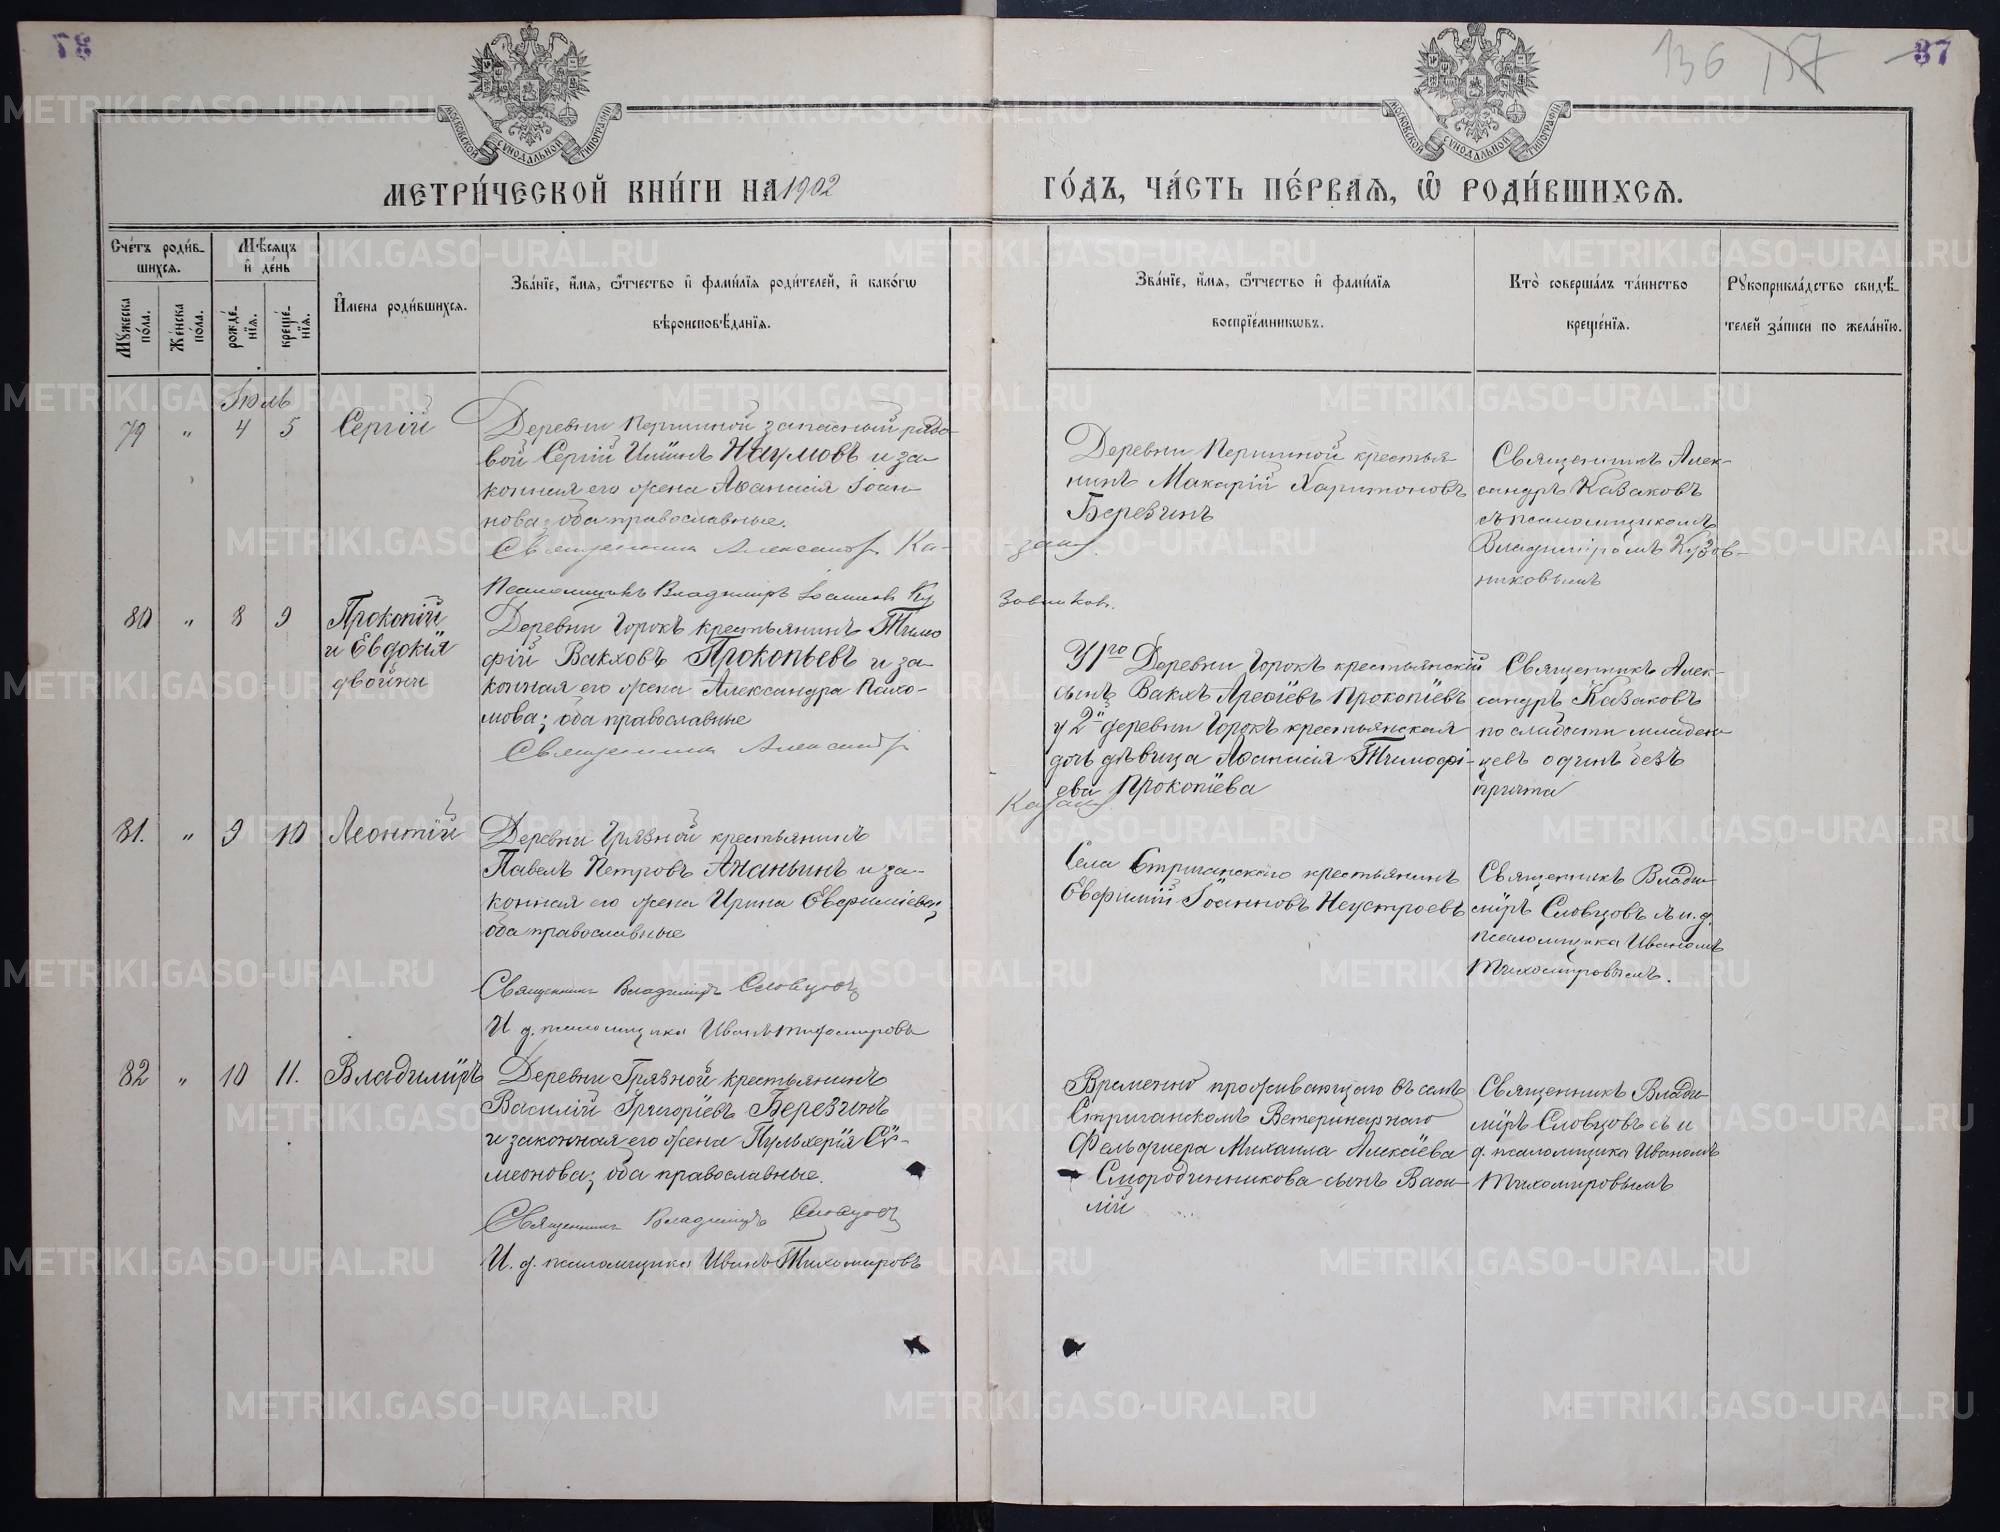 136 157 37
МЕТРИ́ЧЕСКОЙ КНИ́ГИ НА 1902 ГО́ДЪ, ЧА́СТЬ ПЕ́РВАЯ, Ѿ РОДИ́ВШИХСЯ.
МОСКОВСКОЙ СѴНОДАЛЬНОЙ ТИПОГРАФІИ
МОСКОВСКОЙ СѴНОДАЛЬНОЙ ТИПОГРАФІИ
Сче́тъ роди́в-
шихся.
Му́жеска по́ла.
Же́нска по́ла.
Мѣ́сяцъ
и҆ де́нь
рожде́-
нїя.
креще́-
нїя.
И҆мена роди́вшихся.
Зва́нїе, и҆́мя, ѻ҆́тчество и҆ фами́лїя роди́телей, и҆ како́гѡ
вѣроисповѣ́данїя.
Зва́нїе, и҆́мя, ѻ҆́тчество и҆ фами́лїя
воспрїе́мникѡвъ.
Кто̀ соверша́лъ та́инство
креще́нїя.
Рꙋкоприкла́дство свидѣ́-
телей за́писи по жела́нїю.
Іюль
79 " 4 5 Сергій
Деревни Першиной запасный рядо-
вой Сергій Ильинъ Наумовъ и за-
конная его жена Афанасія Іоан-
нова; оба православные.
Священникъ Александръ Ка-
заковъ
Псаломщикъ Владиміръ Іоанновъ Ку
зовников.
Деревни Першиной крестья-
нинъ Макарій Харитоновъ
Березинъ
Священникъ Алек-
сандръ Казаковъ
съ псаломщикомъ
Владиміромъ Кузов-
никовымъ
80 " 8 9 Прокопій
и Евдокія
двойни
Деревни Горокъ крестьянинъ Тимо
фій Вакховъ Прокопьевъ и за-
конная его жена Александра Пахо-
мова; оба православные
Священникъ Александръ
Казаков
У 1го Деревни Горокъ крестьянскій
сынъ Вакхъ Арефіевъ Прокопіевъ
у 2й деревни Горокъ крестьянская
дочь дѣвица Афанасія Тимофі-
ева Прокопіева
Священникъ Алек-
сандръ Казаковъ
по слабости младен-
цевъ одинъ безъ
причта
81. " 9 10 Леонтій
Деревни Грязной крестьянинъ
Павелъ Петровъ Ананьинъ и за-
конная его жена Ирина Евфиміева;
оба православные
Священникъ Владиміръ Словцовъ
И д. псаломщика Иванъ Тихомировъ
Села Стриганскаго крестьянинъ
Евфимій Іоанновъ Неустроевъ
Священникъ Влади-
міръ Словцовъ съ и. д.
псаломщика Иваномъ
Тихомировымъ.
82 " 10 11. Владиміръ
Деревни Грязной крестьянинъ
Василій Григоріевъ Березинъ
и законная его жена Пульхерія Си-
меонова; оба православные.
Священникъ Владиміръ Словцовъ
И. д. псаломщика Иванъ Тихомировъ
Временно проживающаго въ селѣ
Стриганскомъ Ветеринарнаго
Фельдшера Михаила Алексіева
Смородинникова сынъ Васи-
лій
Священникъ Влади-
міръ Словцовъ съ и
д. псаломщика Иваномъ
Тихомировымъ
METRIKI.GASO-URAL.RU